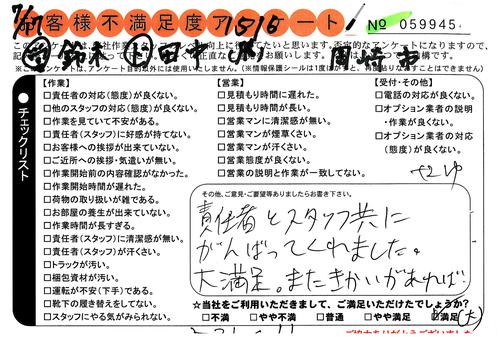 お客様不満足度アンケート
№ 059945
7/17 1516
㊞鈴木 田中 岡崎市
このアンケートは、当社作業スタッフ
向上に行なっていきたいと思います。否定的なアンケートになりますので、
正直な
お願いします。
アンケート目的以外には使用いたしません。(※情報保護シールは1度はがすと、再度貼り直すことはできません)
チェックリスト
【作業】
□責任者の対応(態度)が良くない。
□他のスタッフの対応(態度)が良くない。
□作業を見ていて不安がある。
□責任者(スタッフ)に好感が持てない。
□お客様への挨拶が出来ていない。
□ご近所への挨拶・気遣いが無い。
□作業開始前の内容確認がなかった。
□作業開始時間が遅れた。
□荷物の取り扱いが雑である。
□お部屋の養生が出来ていない。
□作業時間が長すぎる。
□責任者(スタッフ)に清潔感が無い。
□責任者(スタッフ)が汗くさい。
□トラックが汚い。
□梱包資材が汚い。
□運転が不安(下手)である。
□靴下の履き替えをしてない。
□スタッフにやる気がみられない。
【営業】
□見積もり時間に遅れた。
□見積もり時間が長い。
□営業マンに清潔感が無い。
□営業マンが煙草くさい。
□営業マンが汗くさい。
□営業態度が良くない。
□営業の説明と作業が一致してない。
【受付・その他】
□電話の対応が良くない。
□オプション業者の説明
・作業が良くない。
□オプション業者の対応
(態度)が良くない。
その他、ご意見・ご要望等ありましたらお書き下さい。
責任者とスタッフ共に
がんばってくれました。
大満足。またきかいがあれば
☆当社をご利用いただきまして、ご満足いただけたでしょうか?
□不満 □やや不満 □普通 □やや満足 □満足 (大)
ご協力ありがとうございました